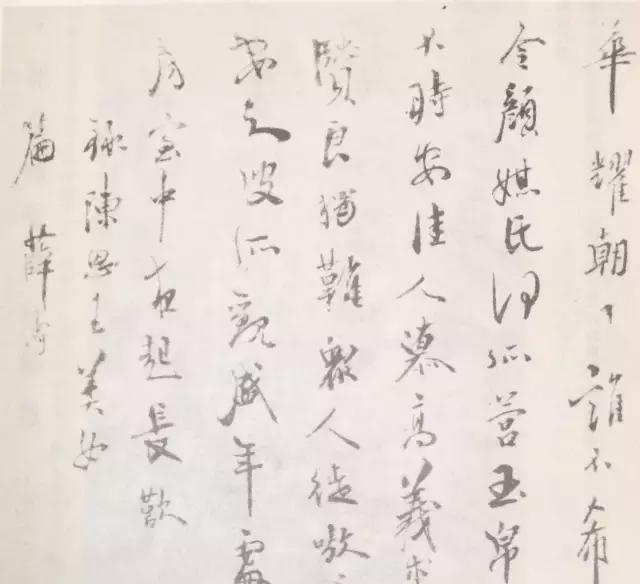 華耀朝日誰不希
令顏媒氏何所營玉帛
不時安佳人慕高義求
賢良獨難衆人徒嗷
安知彼所觀盛年處
房室中夜起長歎
錄陳思王美女
篇 薛